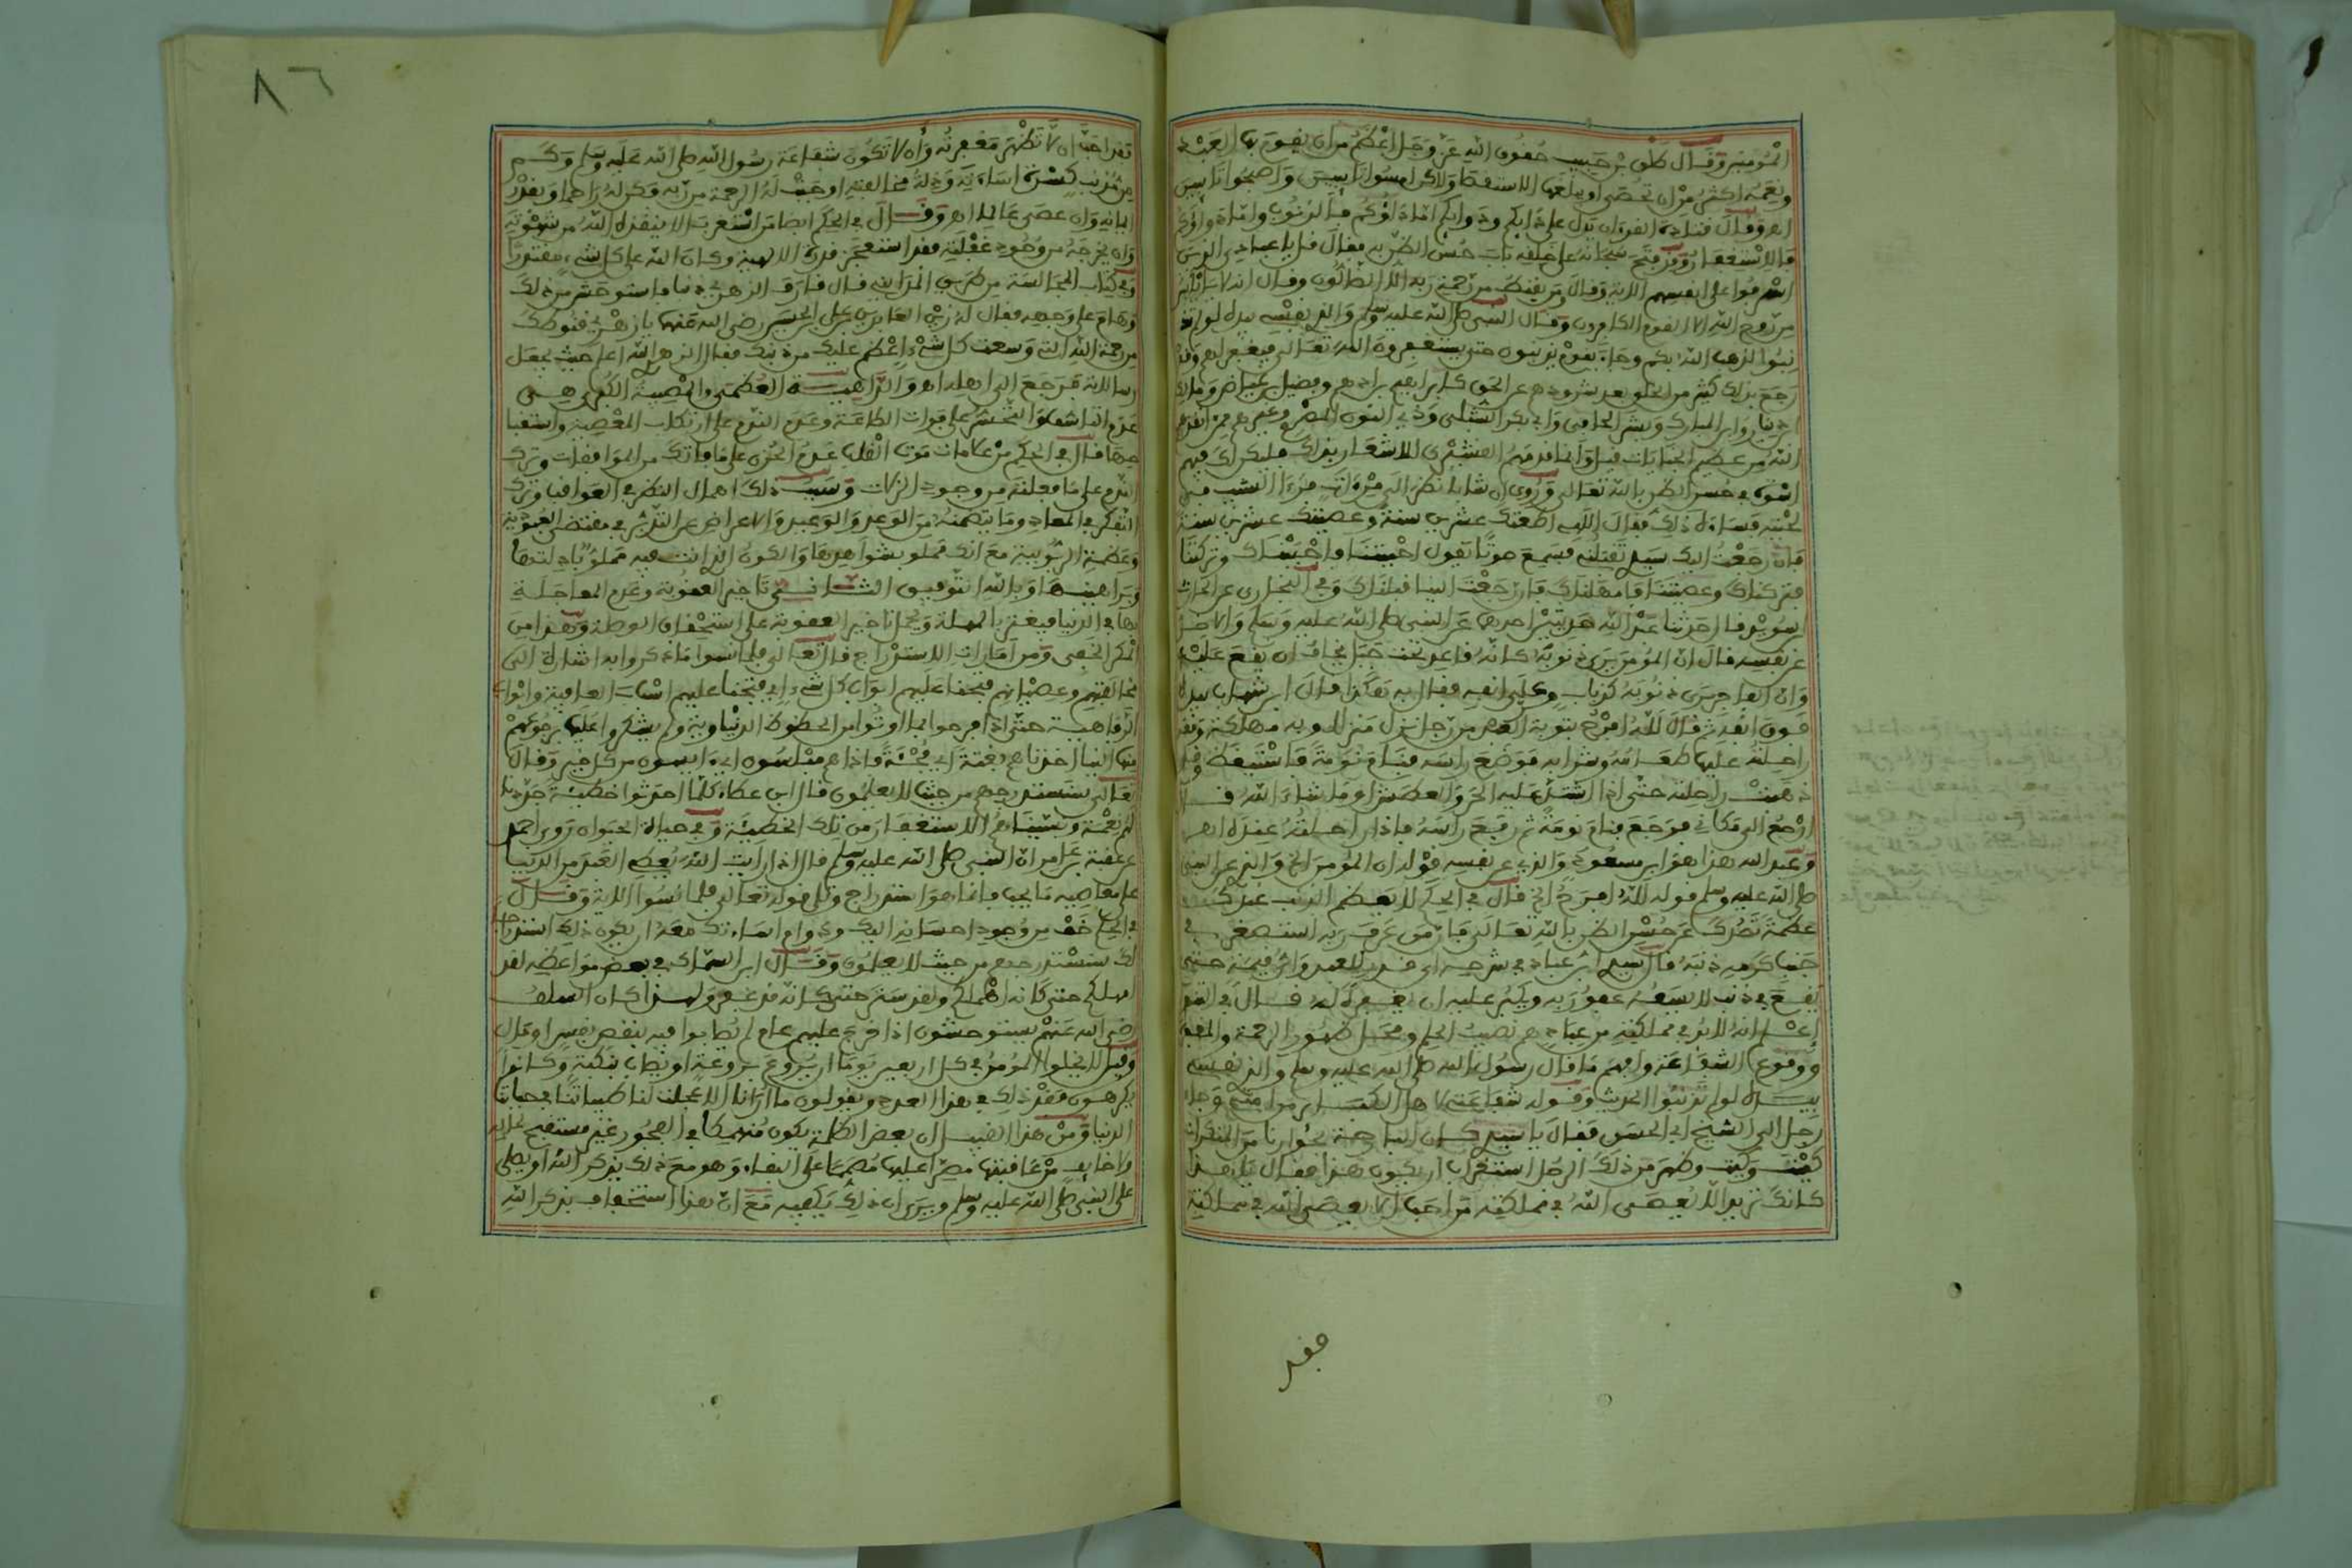 المومنين وقال طلق بن حبيب حقوق الله عز وجل اعظم من ان يقوم بها العبد
ونعمه اكثر من ان تحصى او يبلغها الاستقصا ولاكن امسوا تايبين واصبحوا تايبين
اه وقال قتادة القرءان يدل على دايكم ودوايكم اما داؤكم فالذنوب واما دواؤكم
فالاستغفار وقد فتح سبحانه على خلقه باب حسن الظن به فقال قل يا عبادي الذين
اسرفوا على انفسهم الاية وقال ومن يقنط من رحمة ربه الا الظالون وقال انه لا يايئس
من روح الله الا القوم الكافرون وقال النبي صلى الله عليه وسلم والذي نفسي بيده لو لم
تذنبوا لذهب الله بكم وجاء بقوم يذنبون حتى يستغفرون الله تعالى فيغفر لهم وقد
رجع بذلك كثير من الخلق بعد شرودهم عن الحق كابراهيم بن ادهم وفضيل بن عياض ومالك
بن دينار وابن المبارك وبشر الحافي وابي بكر الشبلي وذي النون المصري وغيرهم ممن انقذهم
الله من عظيم الجنايات قيل وانما قدمهم القشيري للاشعار بذلك فليكن لك فيهم
اسوة في حسن الظن بالله تعالى وروي ان شابا نظر الى مرءات فرءا الشيب في
لحيته فساءه ذلك فقال اللهم اطعتك عشرين سنة وعصيتك عشرين سنة
فان رجعت اليك سيدي تقبلني فسمع صوتا يقول احببتنا فاحببناك وتركتنا
فتركناك وعصيتنا فامهلناك فان رجعت الينا قبلناك وفي البخاري عن الحارث
بن سويد قال حدثنا عبد الله حديثين احدهما عن النبي صلى الله عليه وسلم والاخر
عن نفسه قال ان المومن يرى ذنوبه كانه قاعد تحت جبل يخاف ان يقع عليه
وان الفاجر يرى ذنوبه كذباب وعلى انفه فقال به هكذا قال ابن شهاب بيده
فوق انفه ثم قال لله افرح بتوبة العبد من رجل نزل منزلا وبه مهلكة ومعه
راحلته عليها طعامه وشرابه فوضع راسه فنام نومة فاستيقظ وقد
ذهبت راحلته حتى اذا اشتد عليه الحر والعطش او ما شاء الله قال
ارجع الى مكاني فرجع فنام نومة ثم رفع راسه فاذا راحلته عنده اه
وعبد الله هذا هو ابن مسعود والذي عن نفسه قوله ان المومن الخ والذي عن النبي
صلى الله عليه وسلم قوله لله افرح الخ قال في الحكم لا يعظم الذنب عندك
عظمة تصدك عن حسن الظن بالله تعالى فان من عرف ربه استصغر في
جنب كرمه ذنبه قال سيدي ابن عباد في شرحه اي قدر للعبد واي قيمة حتى
يقع في ذنب لا يسعه عفو ربه ويكبر عليه ان يغفره له قال في التنوير
اعلم انه لا بد في مملكته من عباد هم نصيب الحلم ومحل ظهور الرحمة والمغفرة
ووقوع الشفاعة وافهم ما قال رسول الله صلى الله عليه وسلم والذي نفسي
بيده لو لم تذنبوا الحديث وقوله شفاعتي لاهل الكبائر من امتي وجاء
رجل الى الشيخ ابي الحسن فقال يا سيدي كان البارحة بجوارنا من المنكرات
كيت وكيت وظهر من ذلك الرجل استغراب ان يكون هذا فقال يا هذا
كانك تريد الا يعصى الله في مملكته من احب الا يعصى الله في مملكته
فقد
٨٦
فقد احب ان لا تظهر مغفرته وان لا تكون شفاعة رسول الله صلى الله عليه وسلم وكم
من مذنب كثرت اساءته وذلة مخالفته اوجبت له الرحمة من ربه فكن له راحما وبقدر
ايمانه وان عصى عالما اه وقال في الحكم ايضا من استغرب الا ينقذه الله من شهوته
وان يخرجه من وجود غفلته فقد استعجز قدرة الالهية وكان الله على كل شيء مقتدرا
وفي كتاب المجالسة من طريق المدايني قال قارف الزهري ذنبا فاستوحش من ذلك
وهام على وجهه فقال له زين العابدين علي بن الحسين رضي الله عنهما يا زهري قنوطك
من رحمة الله التي وسعت كل شيء اعظم عليك من ذنبك فقال الزهري الله اعلم حيث يجعل
رسالاته فرجع الى اهله اه والداهية العظمى والمصيبة الكبرى هي
عدم التاسف والتحسر على فوات الطاعة وعدم الندم على ارتكاب المعصية واستقبا
حها قال في الحكم من علامات موت القلب عدم الحزن على ما فاتك من الموافقات وترك
الندم على ما فعلته من وجود الزلات وسبب ذلك اهمال النظر في العواقب وترك
التفكر في المعاد وما يتضمنه من الوعد والوعيد والاعراض عن التدبر في مقتضى العبودية
وعظمة الربوبية مع انك مملو بشواهدها والكون الذي انت فيه مملو بادلتها
وبراهينها وبالله التوفيق الثاني تاخير العقوبة وعدم المعاجلة
بها في الدنيا فيغتر بالمهلة ويحمل تاخير العقوبة على استحقاق الوصلة وهذا من
المكر الخفي ومن امارات الاستدراج قال تعالى فلما نسوا ما ذكروا به اشارة الى
مخالفتهم وعصيانهم فتحنا عليهم ابواب كل شيء اي فتحنا عليهم اسباب العافية وابواب
الرفاهية حتى اذا فرحوا بما اوتوا من الحظوظ الدنياوية ولم يشكروا عليها برجوعهم
منها الينا اخذناهم بغتة اي فجئة فاذا هم مبلسون اي ءايسون من كل خير وقال
تعالى سنستدرجهم من حيث لا يعلمون قال ابن عطاء كلما احدثوا خطيئة جددنا
لهم نعمة ونسيناهم الاستغفار من تلك الخطيئة وفي حياة الحيوان روى احمد
عن عقبة بن عامر ان النبي صلى الله عليه وسلم قال اذا رايت الله يعطي العبد من الدنيا
على معاصيه ما يحب فانما هو استدراج وتلى قوله تعالى فلما نسوا الاية وقال
في الحكم خف من وجود احسانه اليك ودوام اساءتك معه ان يكون ذلك استدراجا
لك سنستدرجهم من حيث لا يعلمون وقال ابن السماك في بعض مواعظه لقد
امهلكم حتى كانه اهملكم ولقد ستر حتى كانه قد غفر ولهذا كان السلف
رضي الله عنهم يستوحشون اذا خرج عليهم عام لم يصابوا فيه بنقص نفس او مال
وقيل لا يخلوا المومن في كل اربعين يوما ان يروع بروعة او يصاب بنكبة وكانوا
يكرهون فقد ذلك في هذا العدد ويقولون ما لنا الا عجلت لنا طيباتنا في حياتنا
الدنيا ومن هذا القبيل ان بعض الظلمة يكون منهمكا في الفجور غير مستقبح لحاله
ولا خايف من عاقبتها مصرا عليها مصمما على البقاء وهو مع ذلك يذكر الله او يصلي
على النبي صلى الله عليه وسلم ويرى ان ذلك يكفيه مع ان هذا استخفاف بذكر الله